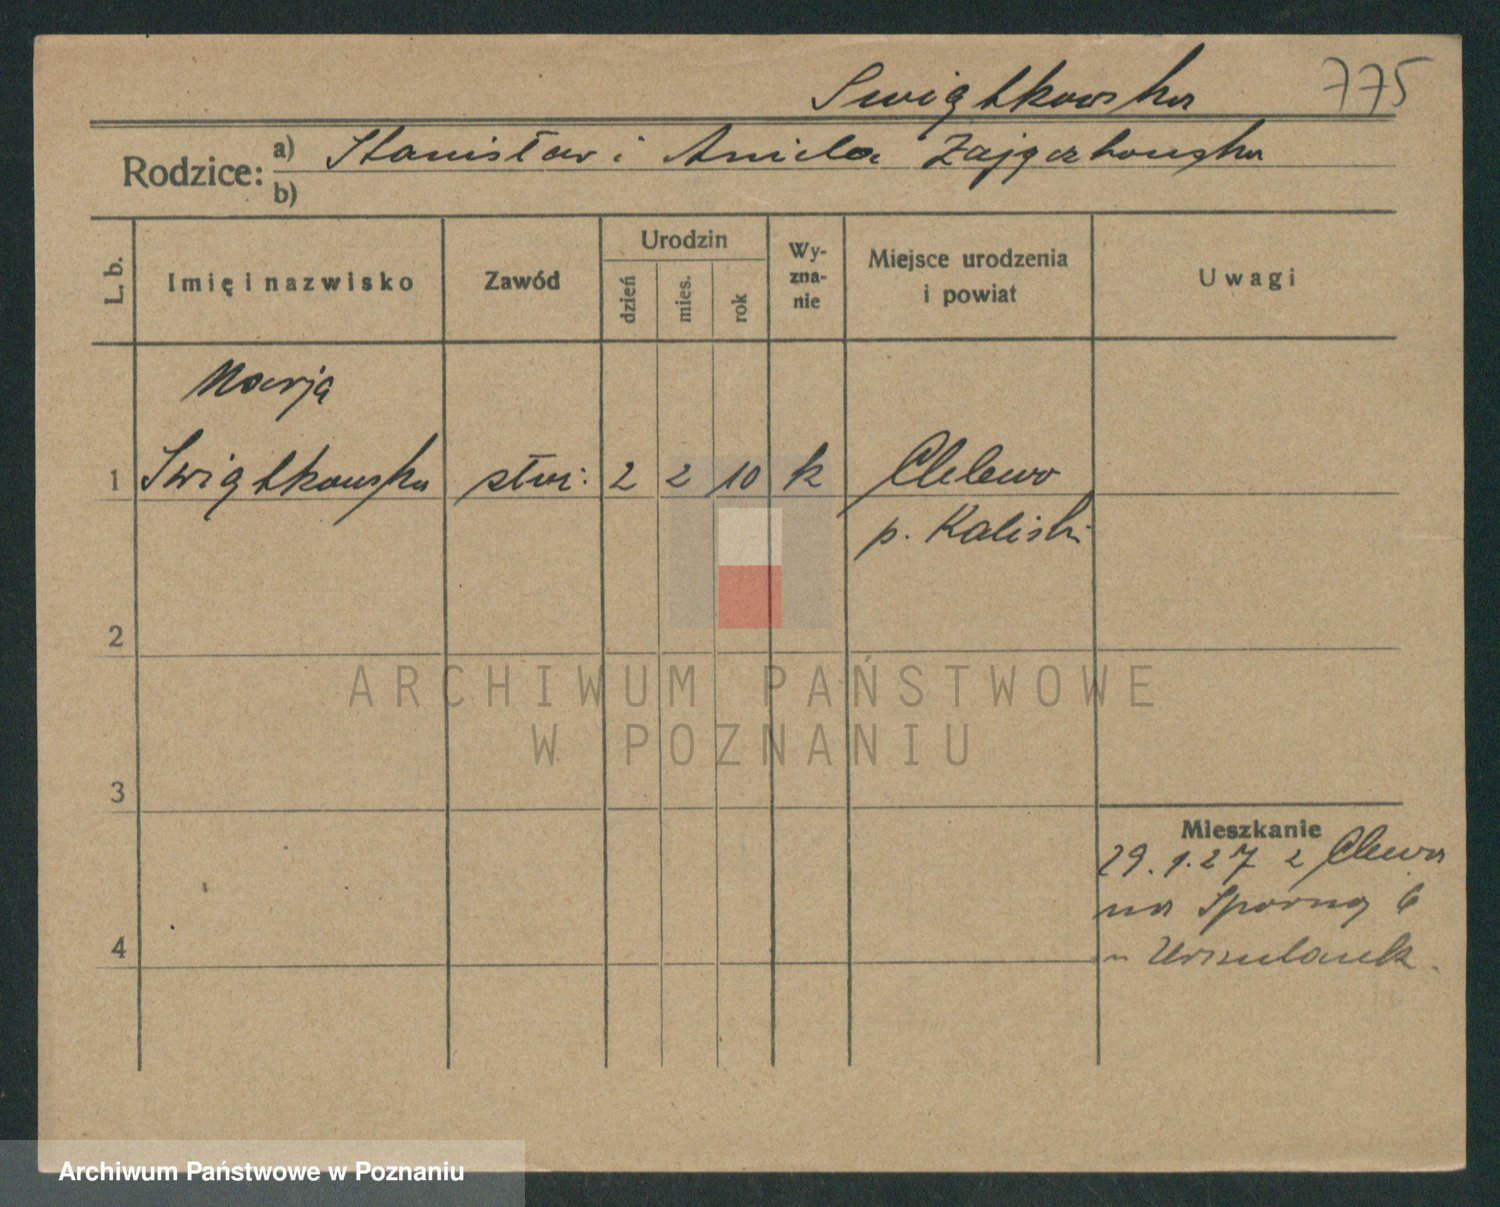 Swiątkowska 775
Rodzice: a) Stanisław i Aniela Zajączkowska
b)
L. b. Imię i nazwisko Zawód Urodzin dzień mies. rok Wyzna-nie Miejsce urodzenia i powiat Uwagi
Marja
1 Swiątkowska służ: 2 2 10 k
p. Kaliski
2
ARCHIWUM PAŃSTWOWE
W POZNANIU
3
Mieszkanie
29.1.27 z
na Sporną 6
4 u Urszulanek.
Archiwum Państwowe w Poznaniu